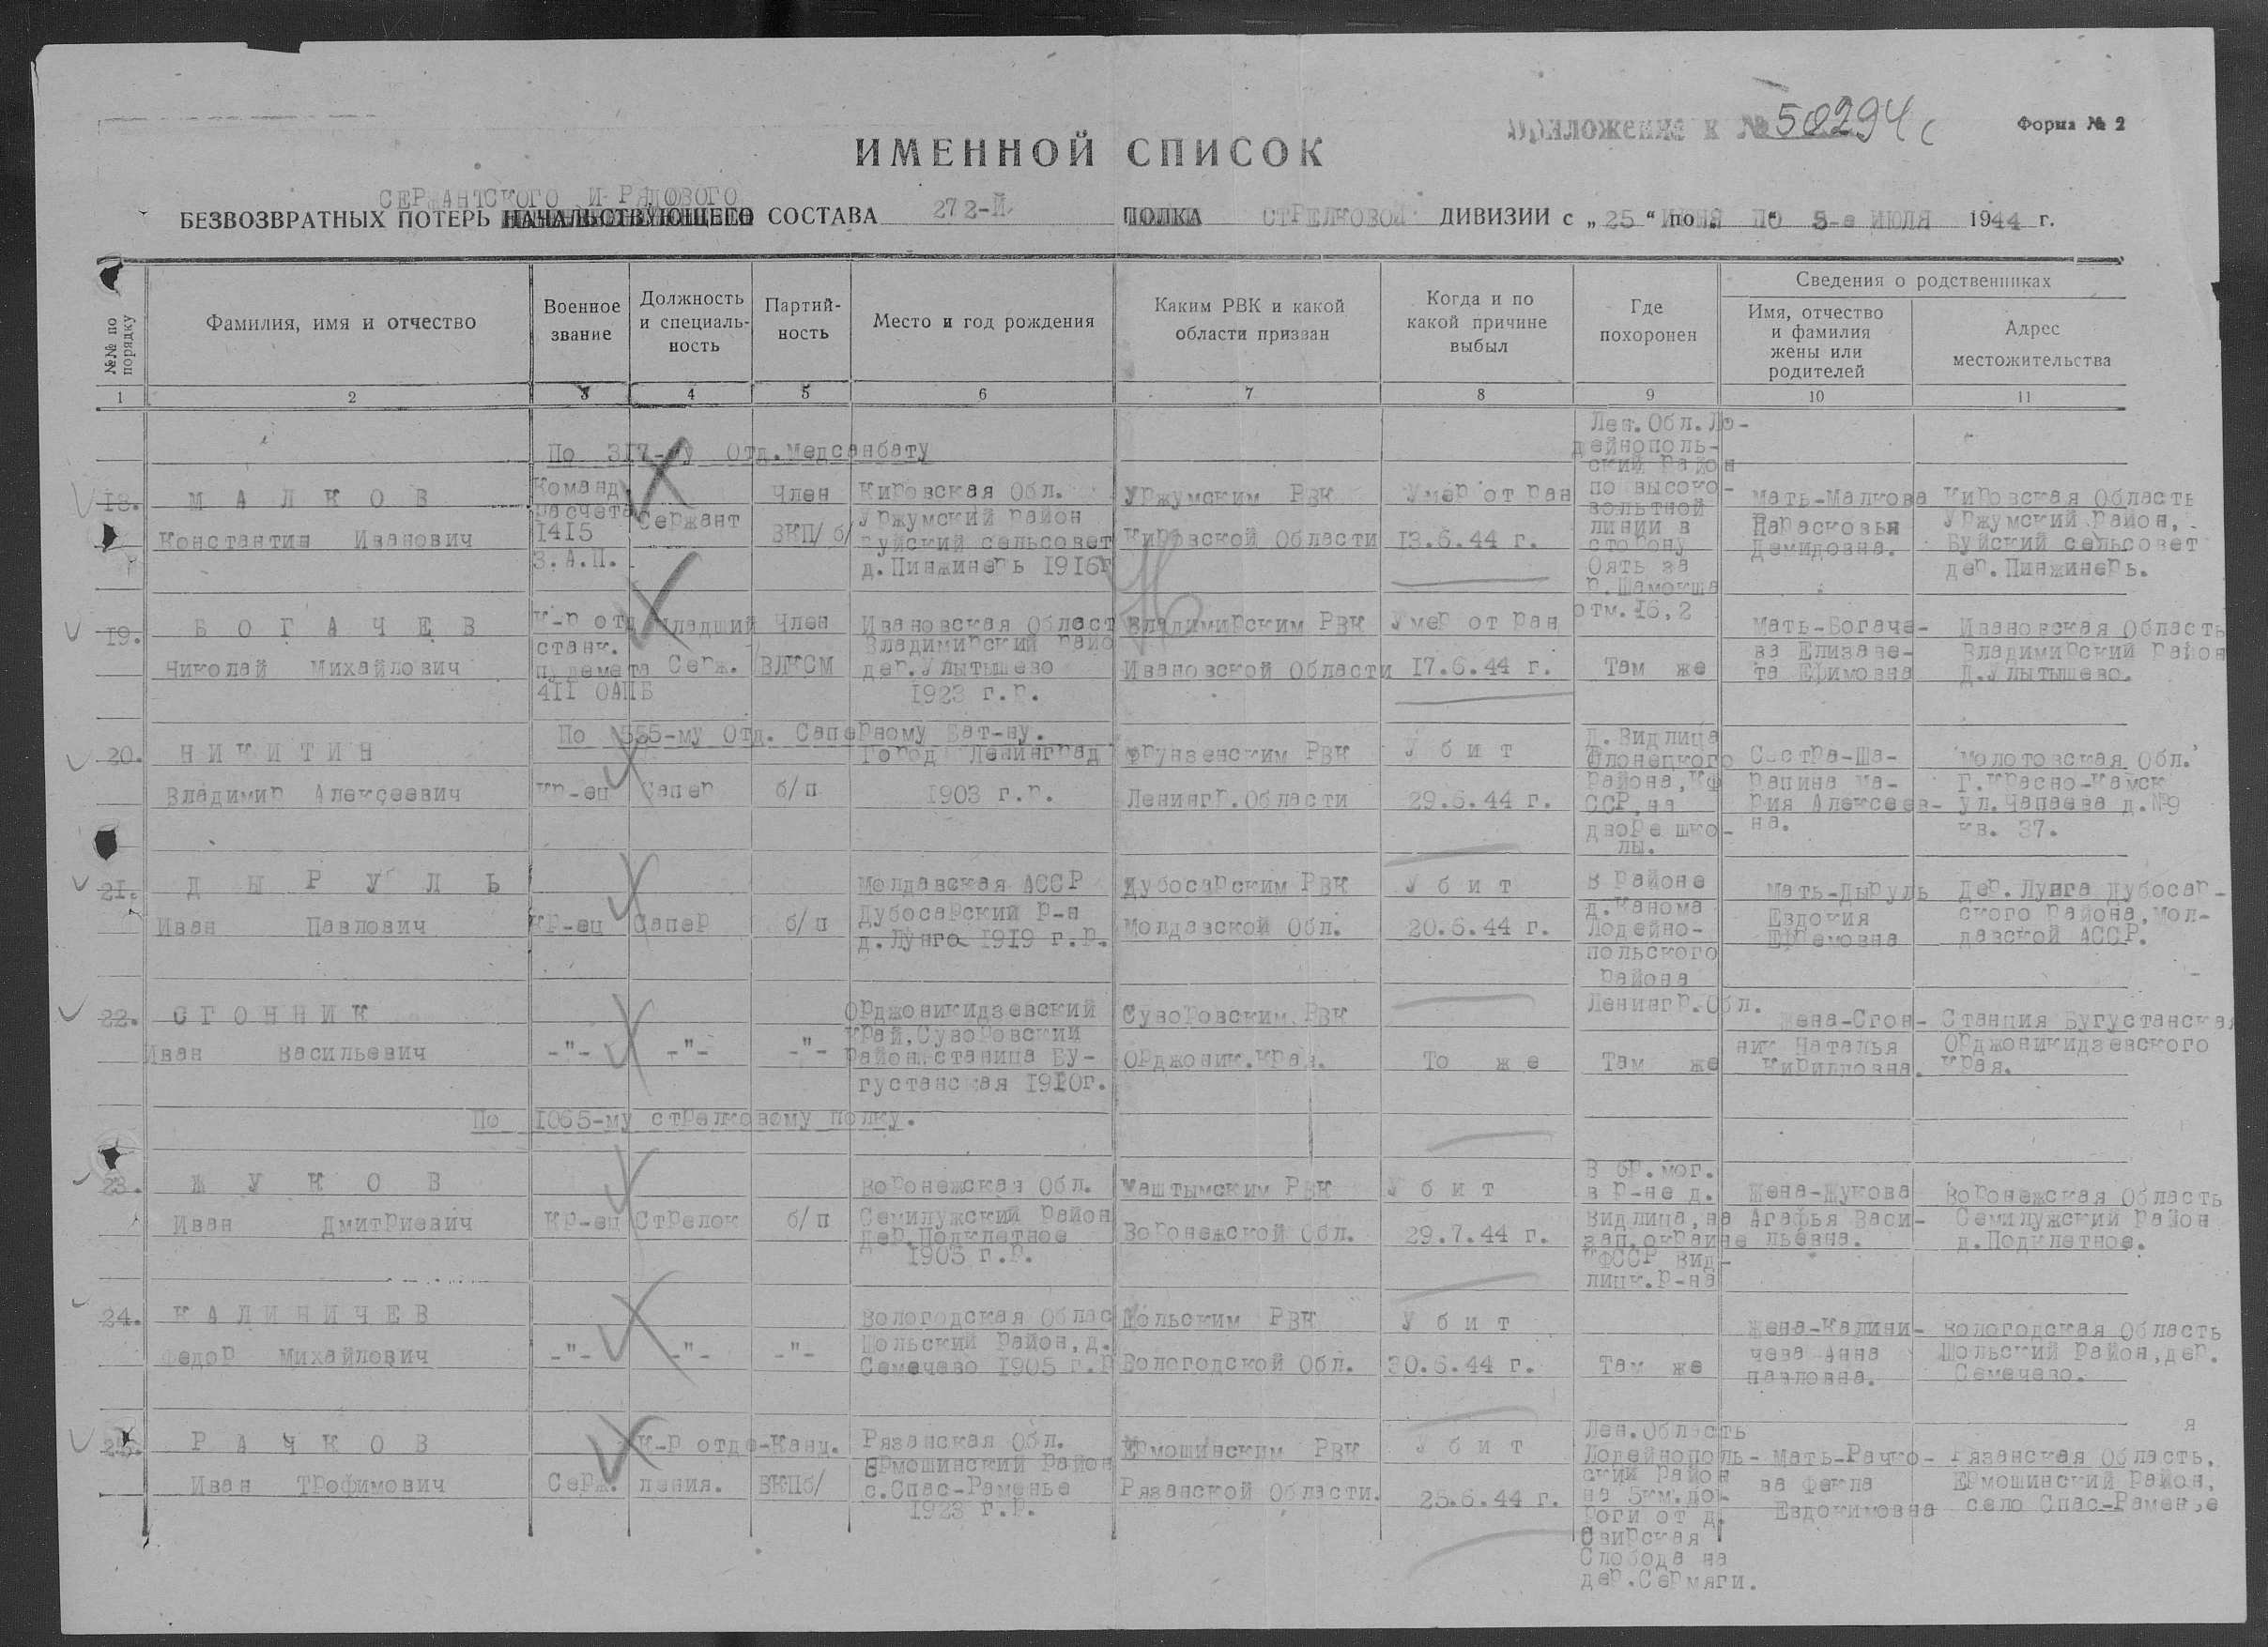 Приложение к № 50294с
Форма № 2
ИМЕННОЙ СПИСОК
СЕРЖАНТСКОГО И РЯДОВОГО
БЕЗВОЗВРАТНЫХ ПОТЕРЬ НАЧАЛЬСТВУЮЩЕГО СОСТАВА 272-Й ПОЛКА СТРЕЛКОВОЙ ДИВИЗИИ с „25“ ИЮНЯ по ПО 5-е ИЮЛЯ 1944 г.
№№ по порядку
Фамилия, имя и отчество
Военное звание
Должность и специаль-ность
Партий-ность
Место и год рождения
Каким РВК и какой области призван
Когда и по какой причине выбыл
Где похоронен
Сведения о родственниках
Имя, отчество и фамилия жены или родителей
Адрес местожительства
1 2 3 4 5 6 7 8 9 10 11
По 317-му Отд.Медсанбату
18.
М А Л К О В
Константин Иванович
Команд
расчета
1415
З.А.П.
Сержант
Член
ВКП/б/
Кировская Обл.
Уржумский район
Буйский сельсовет
д.Пинжинерь 1916г
Уржумским РВК
Кировской Области
Умер от ран
13.6.44 г.
Лен.Обл.Ло-
дейнополь-
ский район
по высоко-
вольтной
линии в
сторону
Оять за
р.Шамокша
отм.16,2
Мать-Малкова
Парасковья
Демидовна.
Кировская Область
Уржумский район,
Буйский сельсовет
дер.Пинжинерь.
19.
Б О Г А Ч Е В
Николай Михайлович
К-р отд
станк.
пулемета
411 ОАПБ
младший
Серж.
Член
ВЛКСМ
Ивановская Област
Владимирский райо
дер.Улытышево
1923 г.р.
Владимирским РВК
Ивановской Области
Умер от ран
17.6.44 г.
Там же
Мать-Богаче-
ва Елизаве-
та Ефимовна
Ивановская Область
Владимирский район
Д.Улытышево.
По 555-му Отд. Саперному Бат-ну.
20.
Н И К И Т И Н
Владимир Алексеевич
Кр-ец
Сапер
б/п
Город Ленинград
1903 г.р.
Фрунзенским РВК
Ленингр.Области
У б и т
29.6.44 г.
Д.Видлица
Олонецкого
района,КФ
ССР,на
дворе шко-
лы.
Сестра-Ша-
рапина Ма-
рия Алексеев-
на.
Молотовская Обл.
Г.Красно-Камск
ул.Чапаева д.№9
кв. 37.
21.
Д Ы Р У Л Ь
Иван Павлович
Кр-ец
Сапер
б/п
Молдавская АССР
Дубосарский р-н
д.Лунго 1919 г.р.
Дубосарским РВК
Молдавской Обл.
У б и т
20.6.44 г.
В районе
д.Канома
Лодейно-
польского
района
Ленингр.Обл.
Мать-Дыруль
Евдокия
Ефремовна
Дер.Лунга Дубосар-
ского района,Мол-
давской АССР.
22.
С Г О Н Н И К
Иван Васильевич
-"-
-"-
-"-
Орджоникидзевский
край,Суворовский
район,станица Бу-
густанская 1910г.
Суворовским РВК
Орджоник.края.
То же
Там же
Жена-Сгон-
ник Наталья
Кирилловна.
Станция Бугустанская
Орджоникидзевского
края.
По 1065-му стрелковому полку.
23.
Ж У К О В
Иван Дмитриевич
Кр-ец
Стрелок
б/п
Воронежская Обл.
Семилужский район
дер.Подклетное
1905 г.р.
Каштымским РВК
Воронежской Обл.
У б и т
29.7.44 г.
В бр.мог.
в р-не д.
Видлица,на
зап.окраине
КФССР Вид-
лицк.р-на
Жена-Жукова
Агафья Васи-
льевна.
Воронежская Область
Семилужский район
д.Подклетное.
24.
К А Л И Н И Ч Е В
Федор Михайлович
-"-
-"-
-"-
Вологодская Облас
Шольский район,д.
Семечево 1905 г.р
Шольским РВК
Вологодской Обл.
У б и т
30.6.44 г.
Там же
Жена-Калини-
чева Анна
Павловна.
Вологодская Область
Шольский район,дер.
Семечево.
25.
Р А Ч К О В
Иван Трофимович
Серж.
К-р отде-
ления.
Канд.
ВКПб/
Рязанская Обл.
Ермошинский район
с.Спас-Раменье
1923 г.р.
Ермошинским РВК
Рязанской Области.
У б и т
25.6.44 г.
Лен.Область
Лодейнополь-
ский район
на 5км.до-
роги от д.
Свирская
Слобода на
дер.Сермяги.
Мать-Рачко-
ва Фекла
Евдокимовна
я
Рязанская Область,
Ермошинский район,
село Спас-Раменье